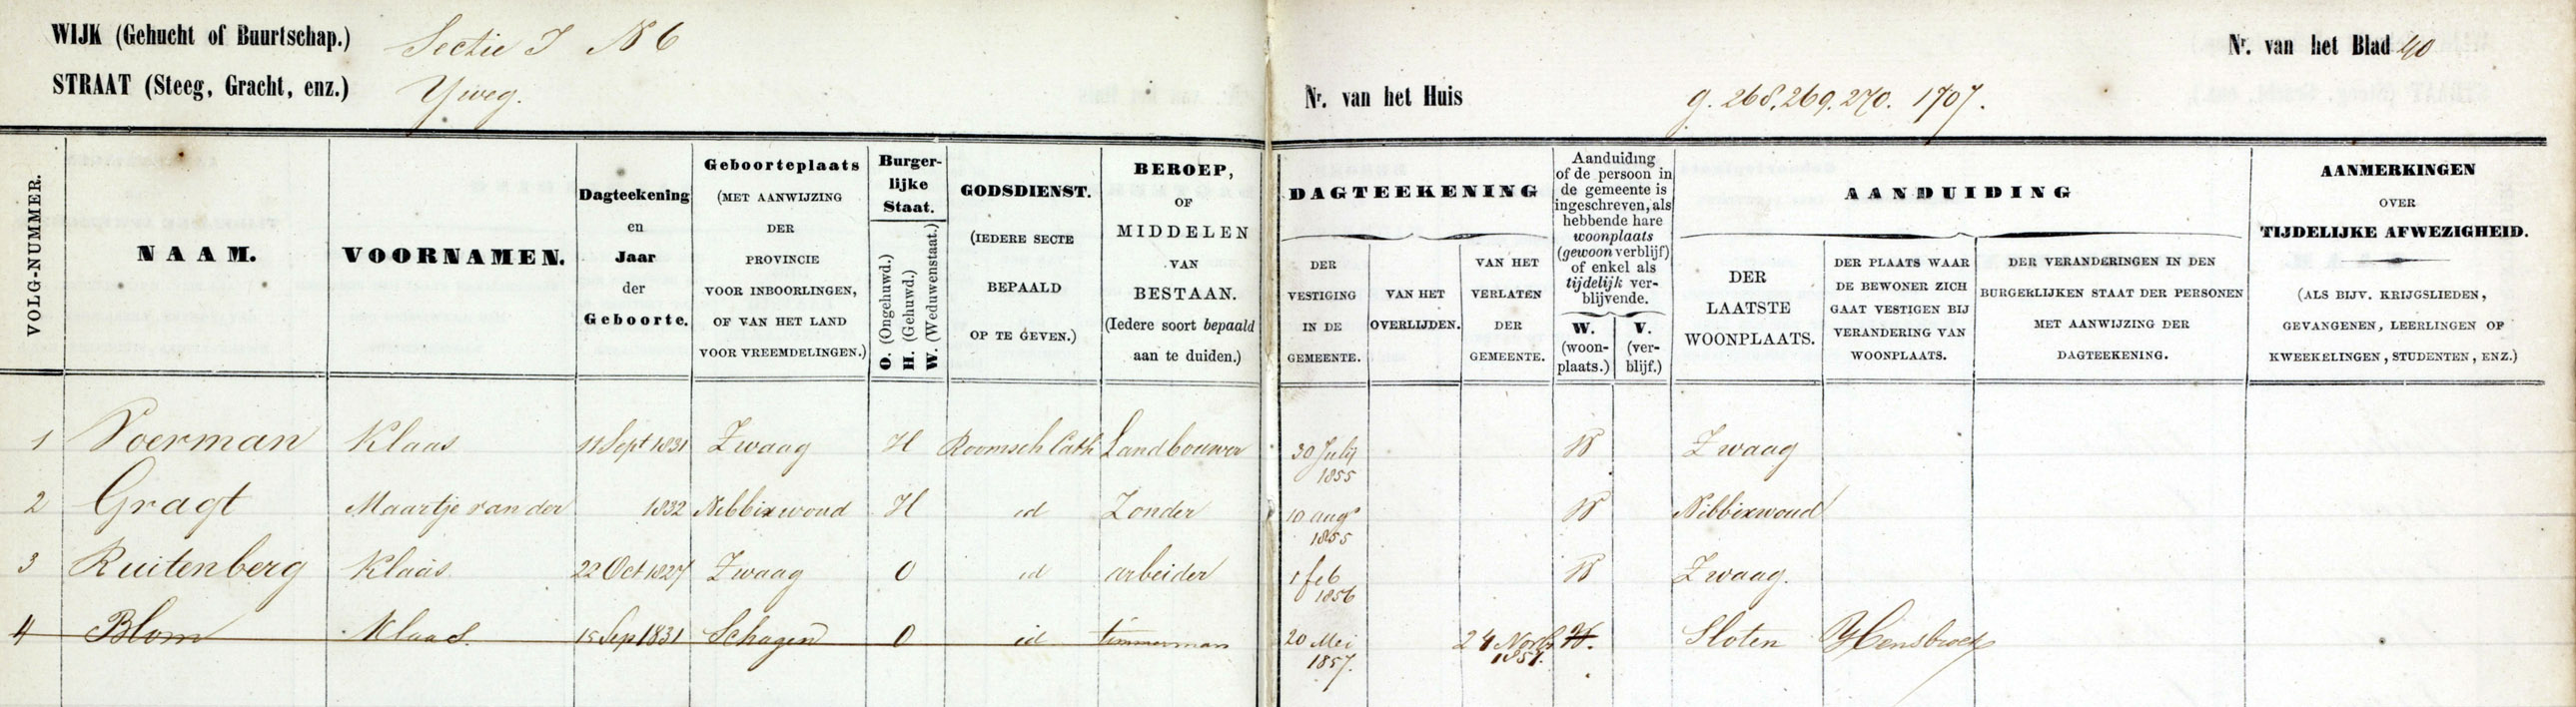 WIJK (Gehucht of Buurtschap.) Sectie I N 6
STRAAT (Steeg, Gracht, enz.) Yweg.
Nr. van het Huis g. 268. 269. 270. 1707.
Nr. van het Blad 40
VOLG-NUMMER.
NAAM.
VOORNAMEN.
Dagteekening
en
Jaar
der
Geboorte.
Geboorteplaats
(MET AANWIJZING
DER
PROVINCIE
VOOR INBOORLINGEN,
OF VAN HET LAND
VOOR VREEMDELINGEN.)
Burger-
lijke
Staat.
O. (Ongehuwd.)
H. (Gehuwd.)
W. (Weduwenstaat.)
GODSDIENST.
(IEDERE SECTE
BEPAALD
OP TE GEVEN.)
BEROEP,
OF
MIDDELEN
VAN
BESTAAN.
(Iedere soort bepaald
aan te duiden.)
DAGTEEKENING
DER
VESTIGING
IN DE
GEMEENTE.
VAN HET
OVERLIJDEN.
VAN HET
VERLATEN
DER
GEMEENTE.
Aanduiding
of de persoon in
de gemeente is
ingeschreven, als
hebbende hare
woonplaats
(gewoon verblijf)
of enkel als
tijdelijk ver-
blijvende.
W.
(woon-
plaats.)
V.
(ver-
blijf.)
AANDUIDING
DER
LAATSTE
WOONPLAATS.
DER PLAATS WAAR
DE BEWONER ZICH
GAAT VESTIGEN BIJ
VERANDERING VAN
WOONPLAATS.
DER VERANDERINGEN IN DEN
BURGERLIJKEN STAAT DER PERSONEN
MET AANWIJZING DER
DAGTEEKENING.
AANMERKINGEN
OVER
TIJDELIJKE AFWEZIGHEID.
(ALS BIJV. KRIJGSLIEDEN,
GEVANGENEN, LEERLINGEN OF
KWEEKELINGEN, STUDENTEN, ENZ.)
1 Voerman Klaas 11 Sept 1831 Zwaag H Roomsch Cath Landbouwer 30 July 1855 W Zwaag
2 Gragt Maartje van der 1832 Nibbixwoud H id Zonder 10 aug 1855 W Nibbixwoud
3 Ruitenberg Klaas 22 Oct 1827 Zwaag O id arbeider 1 feb 1856 W Zwaag.
4 Blom Klaas. 15 Sep 1831 Schagen O id timmerman 20 Mei 1857. 24 Novb 1857. W. Sloten Hensbroek